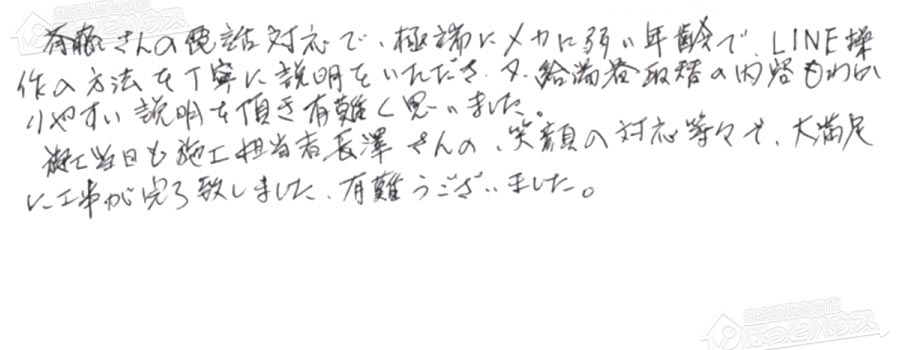 斉藤さんの電話対応で、極端にメカに弱い年齢で、LINE操
作の方法を丁寧に説明をいただき、又、給湯器取替の内容もわか
りやすい説明を頂き有難く思いました。
施工当日も施工担当者長澤さんの、笑顔の対応等々で、大満足
に工事が完了致しました、有難うございました。
ほっとハウス
ほっとハウス